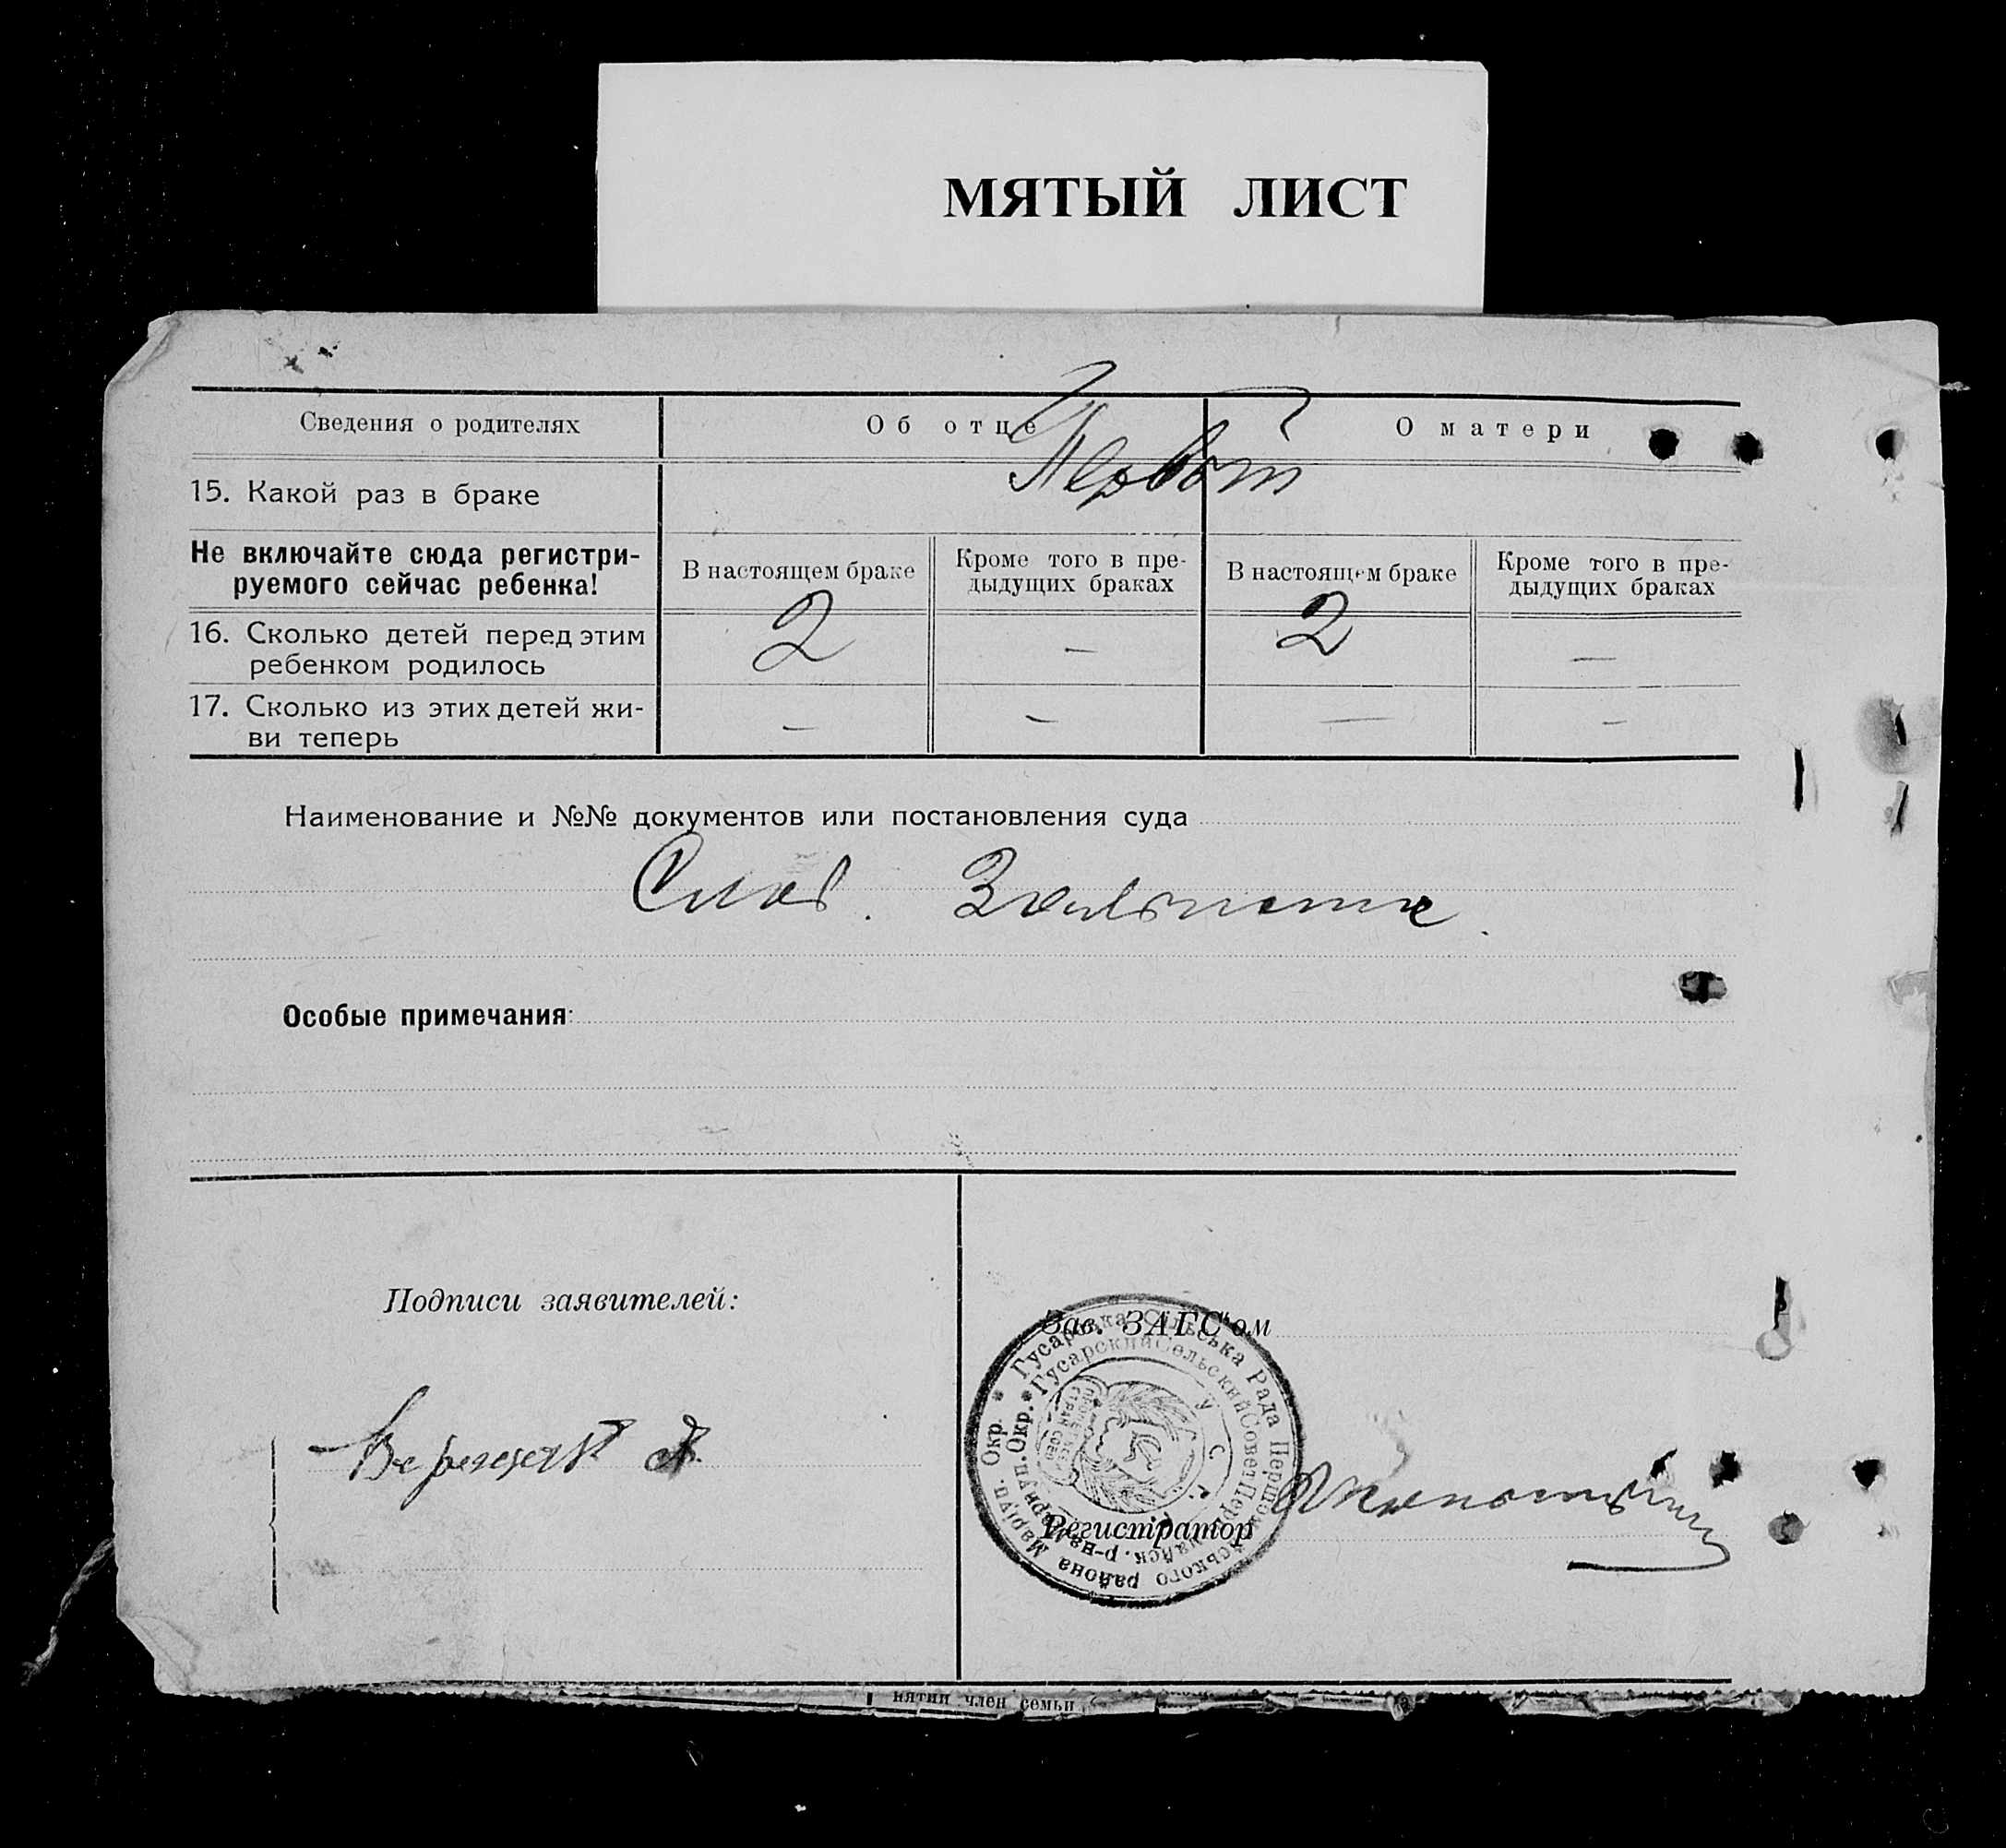 МЯТЫЙ ЛИСТ
Сведения о родителях
Об отце
О матери
15. Какой раз в браке
Первый
Не включайте сюда регистри-
руемого сейчас ребенка!
В настоящем браке
Кроме того в пре-
дыдущих браках
В настоящем браке
Кроме того в пре-
дыдущих браках
16. Сколько детей перед этим
ребенком родилось
2
–
2
–
17. Сколько из этих детей жи-
ви теперь
–
–
–
–
Наименование и №№ документов или постановления суда
Особые примечания:
Подписи заявителей:
Зав. ЗАГС'ом
Регистратор
* Гусарська Сільська Рада Першомайського района Маріуп. Окр.
* Гусарский Сельский Совет Первомайск. р-на Мариуп. Окр.
У С Р Р
нятии член семьи